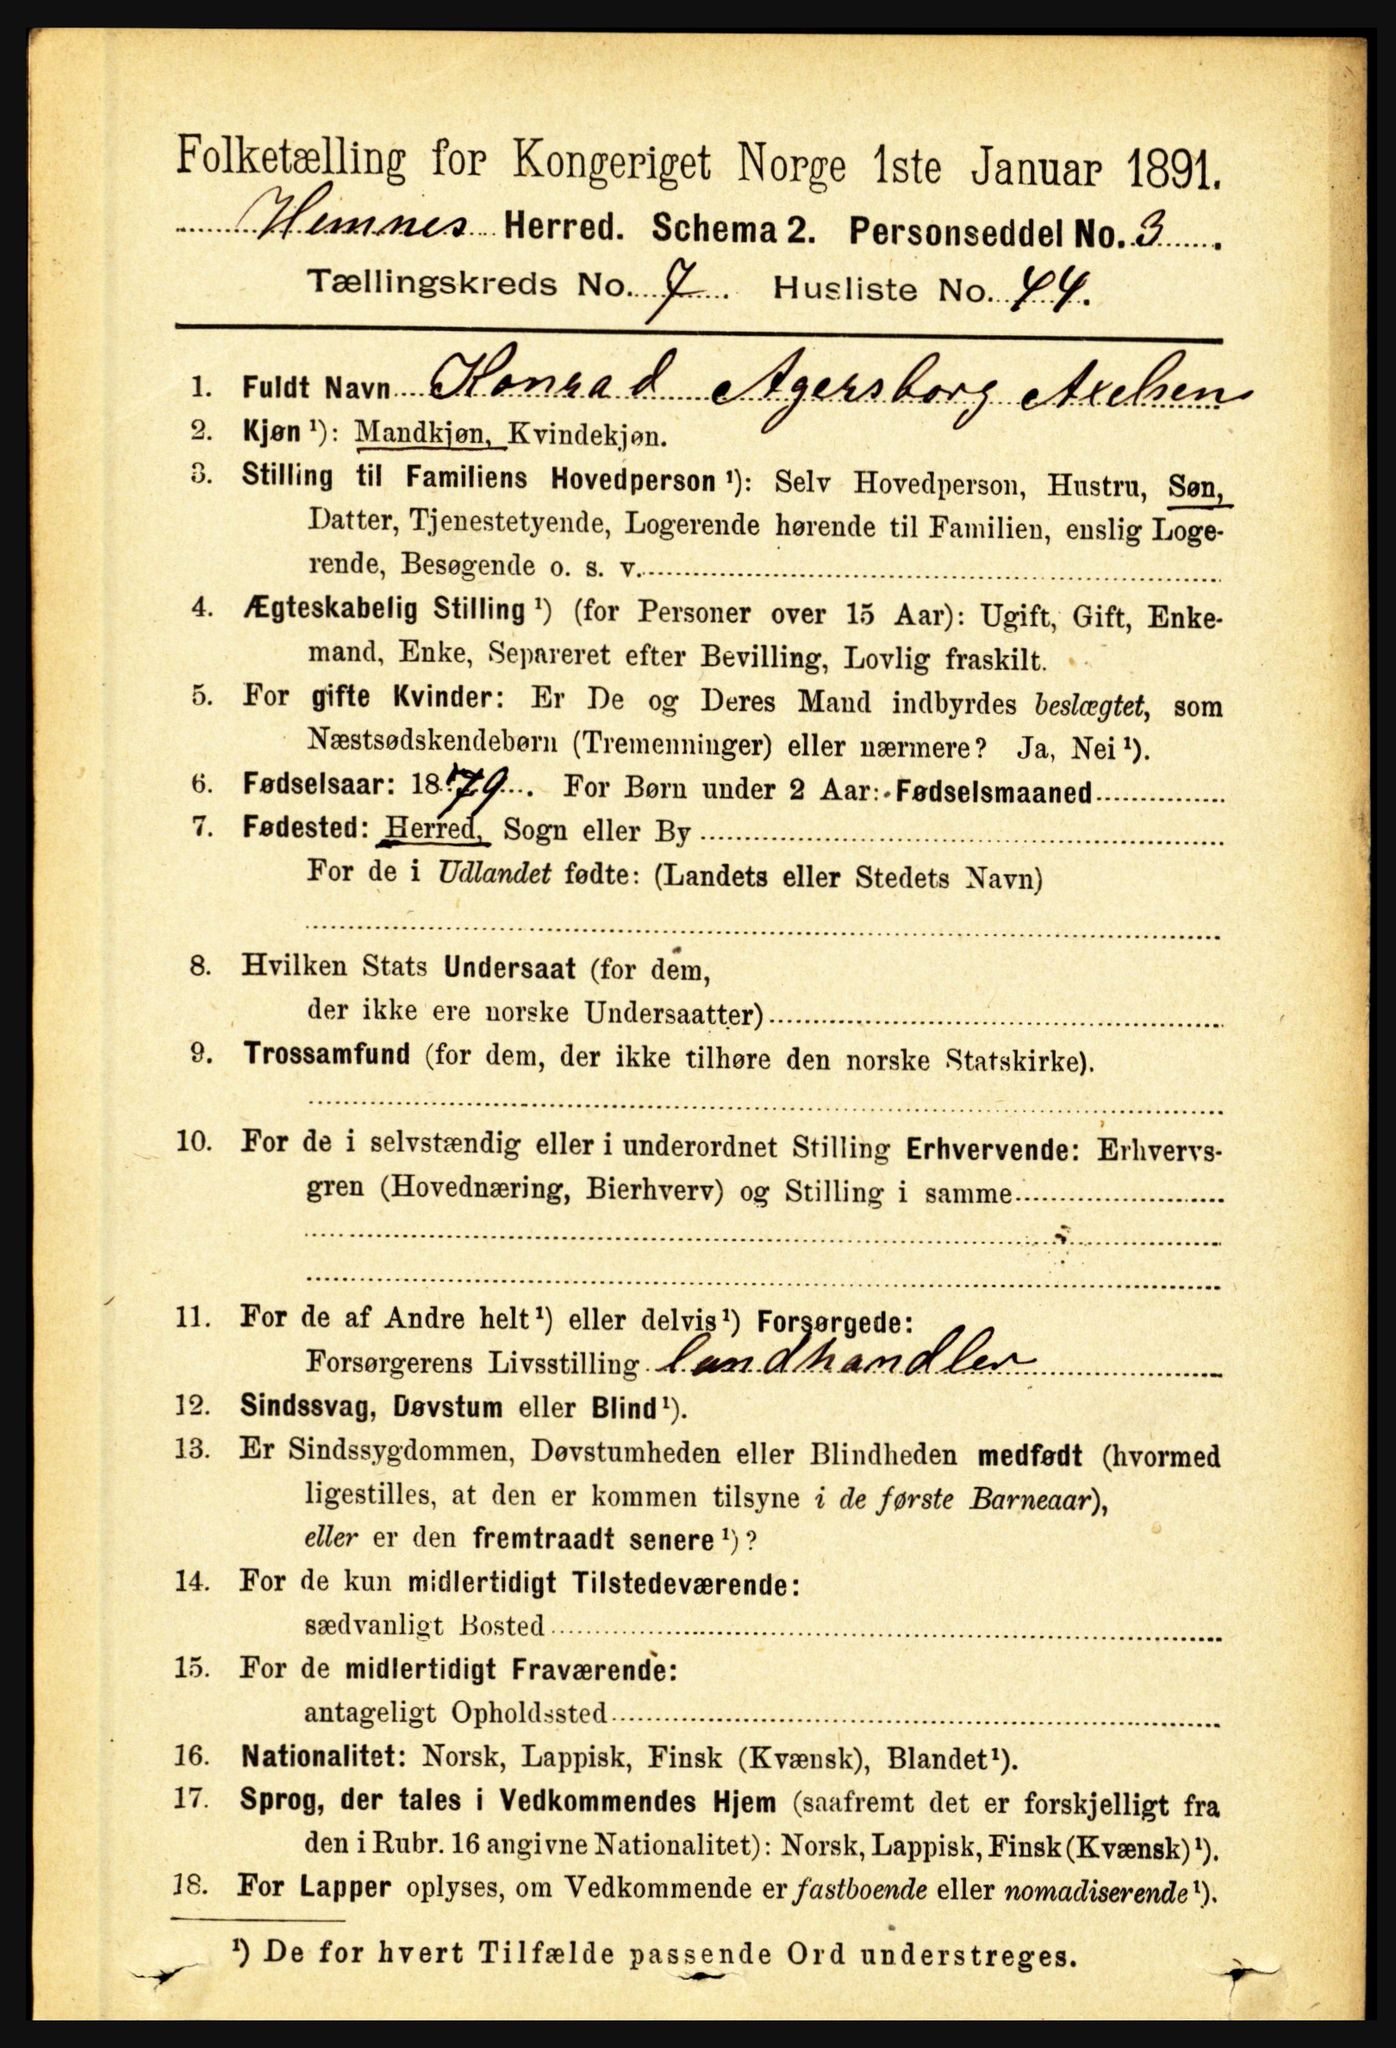 Folketælling for Kongeriget Norge 1ste Januar 1891.
Hemnes Herred. Schema 2. Personseddel No. 3.
Tællingskreds No. 7. Husliste No. 44.
1. Fuldt Navn Konrad Agersborg Axelsen
2. Kjøn ¹): Mandkjøn, Kvindekjøn.
3. Stilling til Familiens Hovedperson ¹): Selv Hovedperson, Hustru, Søn,
Datter, Tjenestetyende, Logerende hørende til Familien, enslig Loge-
rende, Besøgende o. s. v.
4. Ægteskabelig Stilling ¹) (for Personer over 15 Aar): Ugift, Gift, Enke-
mand, Enke, Separeret efter Bevilling, Lovlig fraskilt.
5. For gifte Kvinder: Er De og Deres Mand indbyrdes beslægtet, som
Næstsødskendebørn (Tremenninger) eller nærmere? Ja, Nei ¹).
6. Fødselsaar: 1879. For Børn under 2 Aar: Fødselsmaaned
7. Fødested: Herred, Sogn eller By
For de i Udlandet fødte: (Landets eller Stedets Navn)
8. Hvilken Stats Undersaat (for dem,
der ikke ere norske Undersaatter)
9. Trossamfund (for dem, der ikke tilhøre den norske Statskirke).
10. For de i selvstændig eller i underordnet Stilling Erhvervende: Erhvervs-
gren (Hovednæring, Bierhverv) og Stilling i samme
11. For de af Andre helt ¹) eller delvis ¹) Forsørgede:
Forsørgerens Livsstilling landhandler
12. Sindssvag, Døvstum eller Blind ¹).
13. Er Sindssygdommen, Døvstumheden eller Blindheden medfødt (hvormed
ligestilles, at den er kommen tilsyne i de første Barneaar),
eller er den fremtraadt senere ¹)?
14. For de kun midlertidigt Tilstedeværende:
sædvanligt Bosted
15. For de midlertidigt Fraværende:
antageligt Opholdssted
16. Nationalitet: Norsk, Lappisk, Finsk (Kvænsk), Blandet ¹).
17. Sprog, der tales i Vedkommendes Hjem (saafremt det er forskjelligt fra
den i Rubr. 16 angivne Nationalitet): Norsk, Lappisk, Finsk (Kvænsk) ¹).
18. For Lapper oplyses, om Vedkommende er fastboende eller nomadiserende ¹).
¹) De for hvert Tilfælde passende Ord understreges.